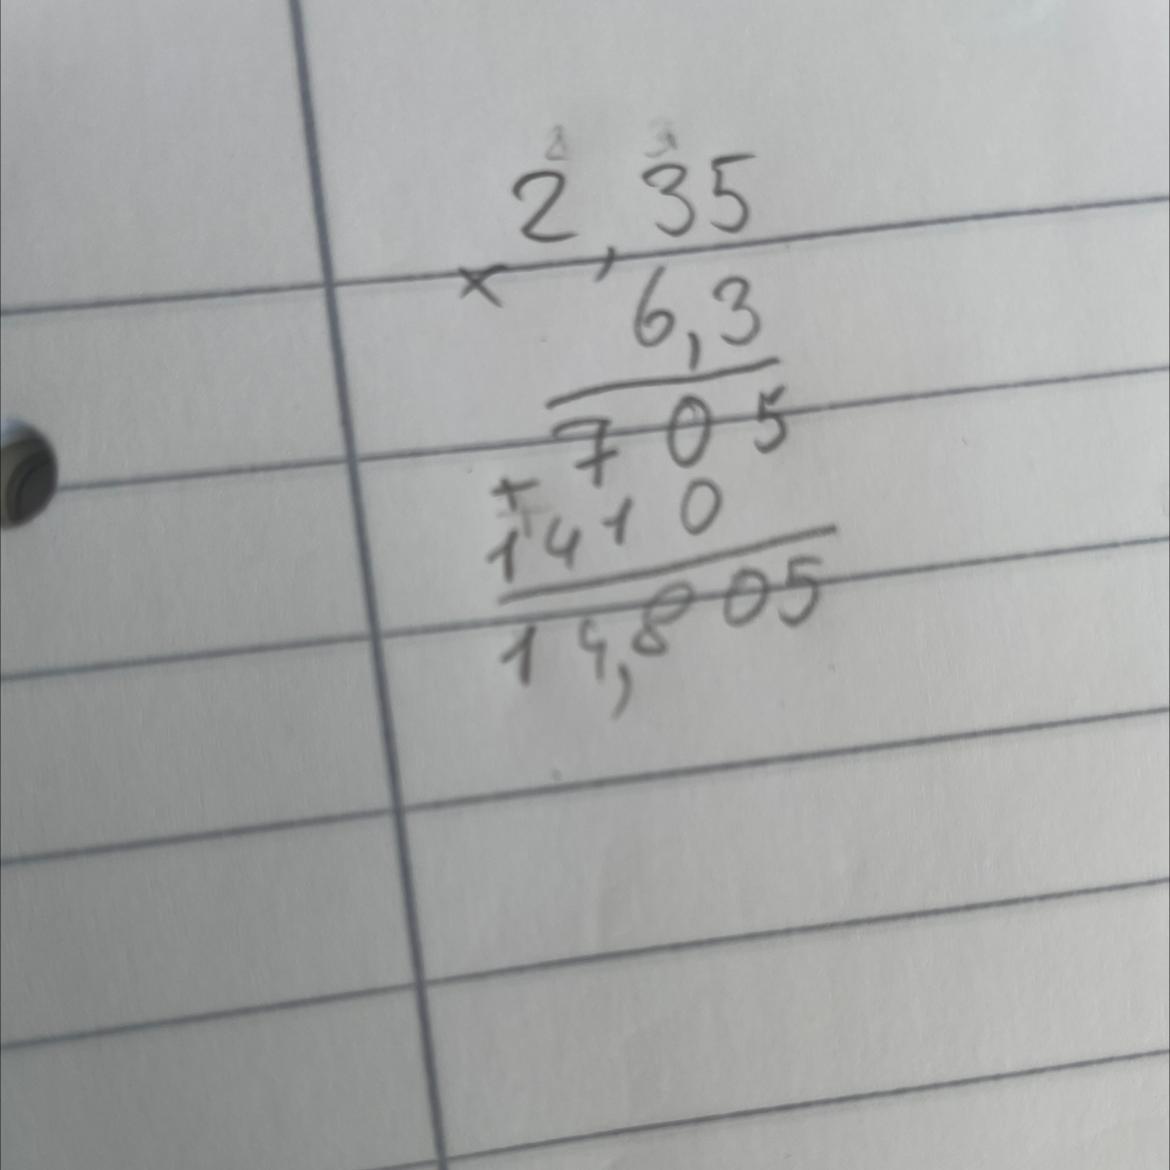 2,35
× 6,3
705
+ 1410
14,805